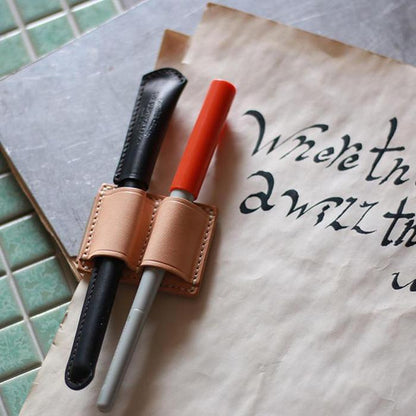 Where th
a will th